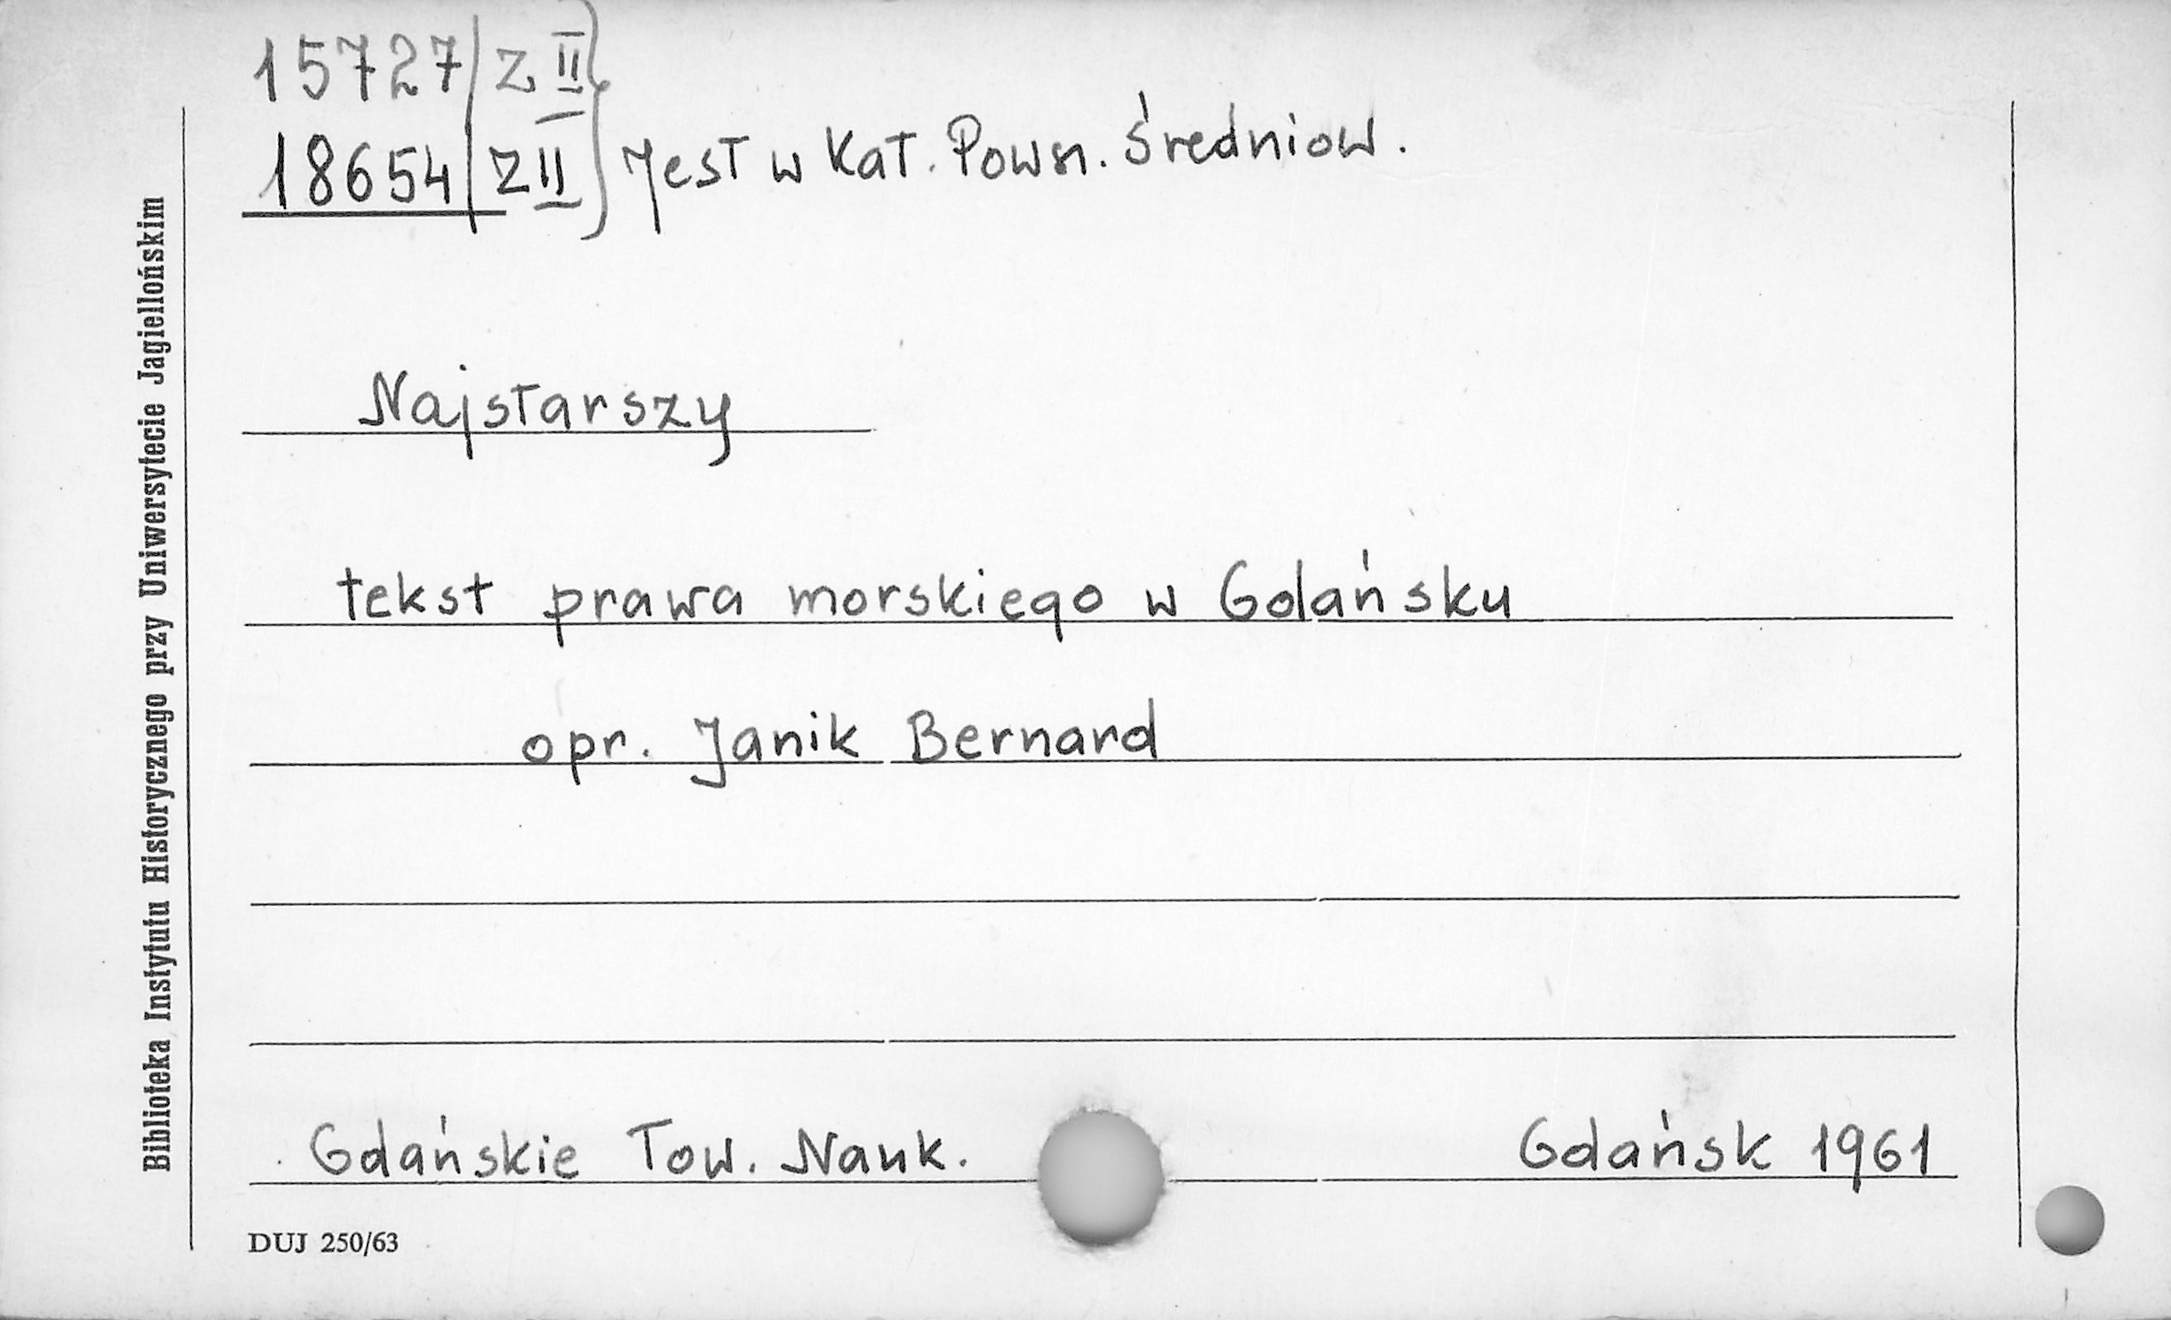 15727/z II
18654/z II } Jest w Kat. Powsz. Średniow.
Najstarszy
tekst prawa morskiego w Gdańsku
opr. Janik Bernard
Gdańskie Tow. Nauk. Gdańsk 1961
DUJ 250/63
Biblioteka Instytutu Historycznego przy Uniwersytecie Jagielońskim